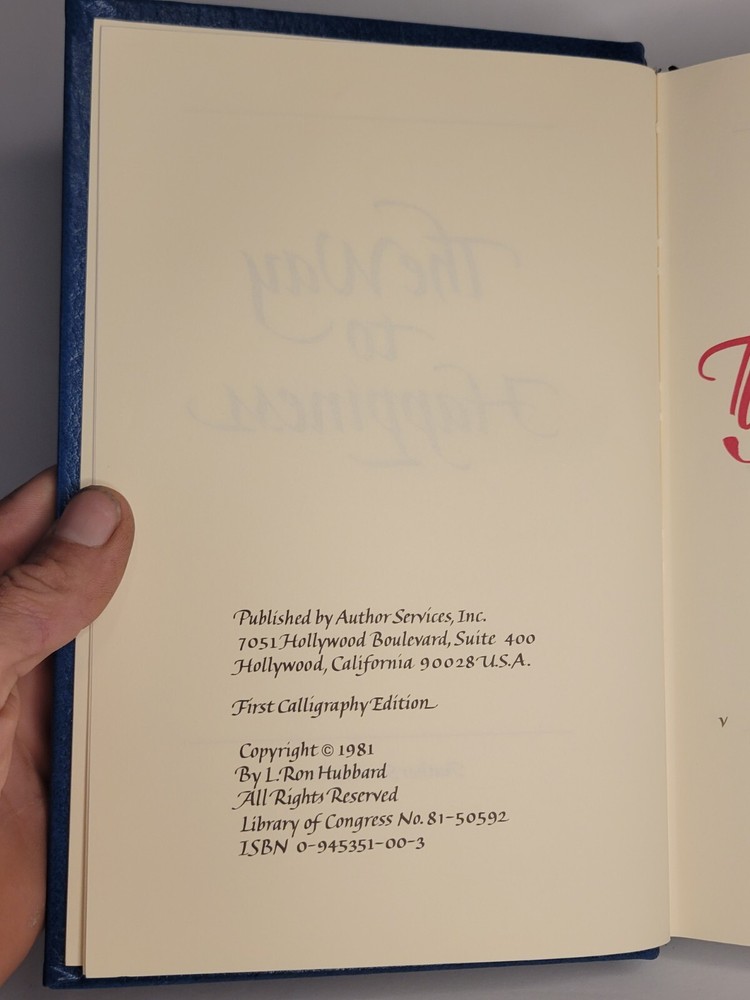 The Way
to
Happiness
Published by Author Services, Inc.
7051 Hollywood Boulevard, Suite 400
Hollywood, California 90028 U.S.A.
First Calligraphy Edition
Copyright © 1981
By L. Ron Hubbard
All Rights Reserved
Library of Congress No. 81-50592
ISBN 0-945351-00-3